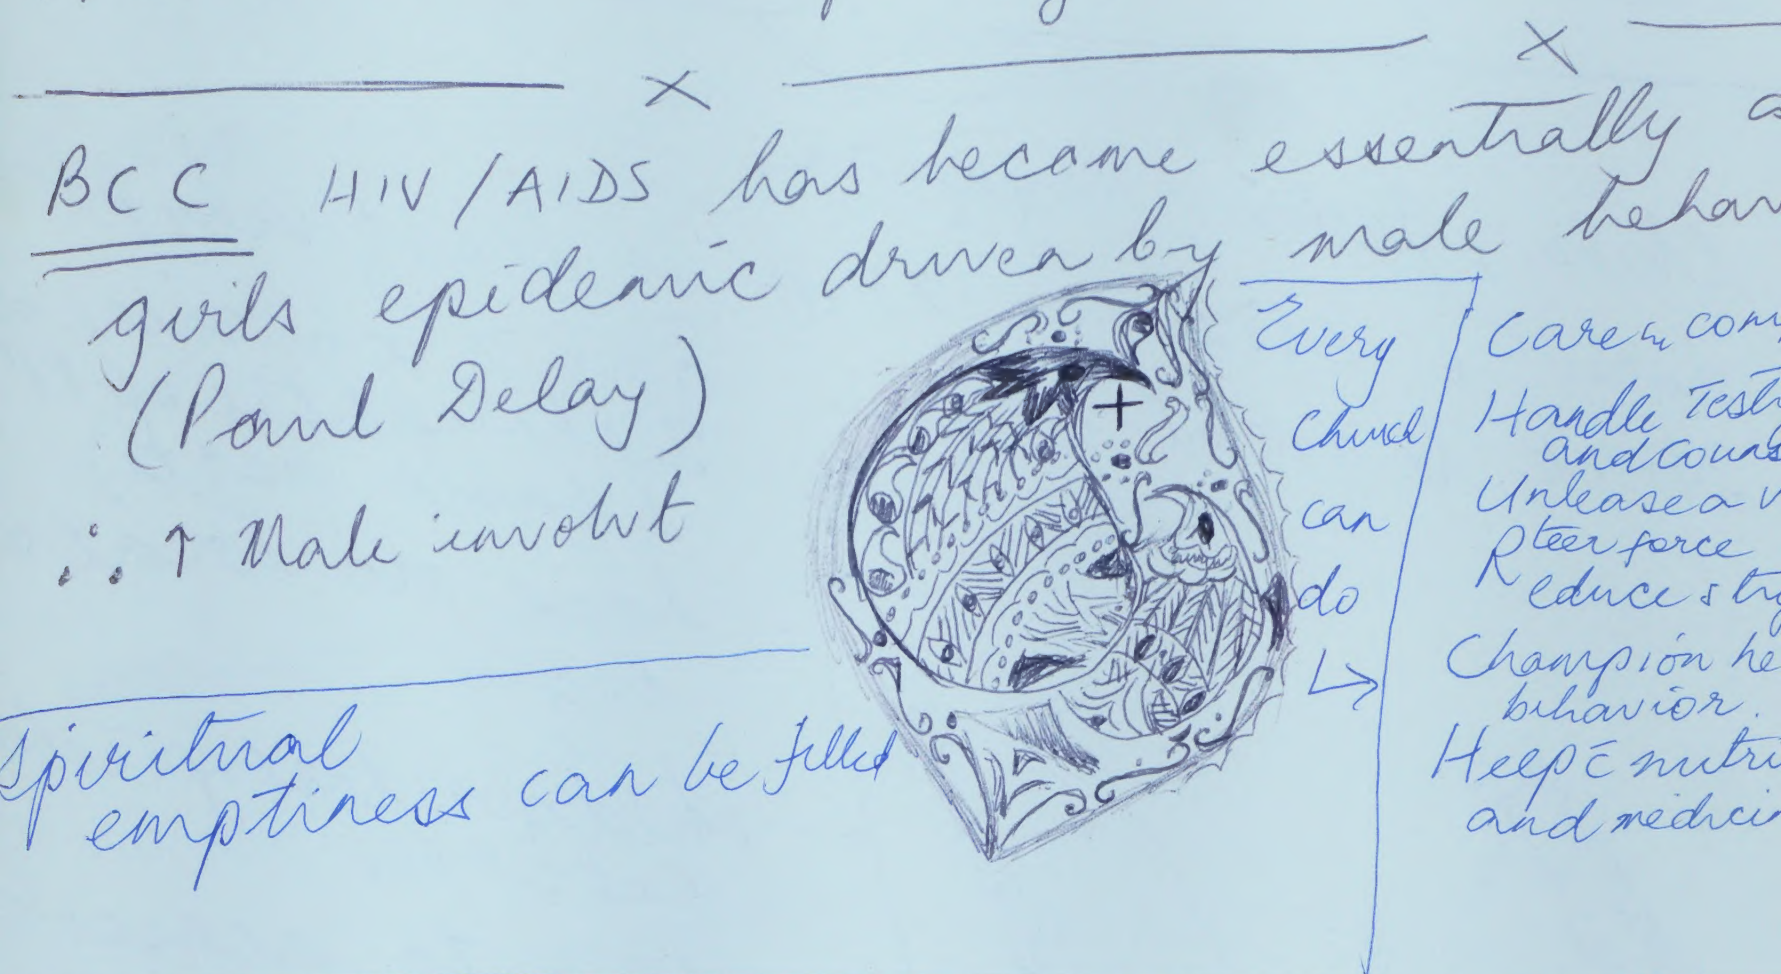 BCC HIV/AIDS has become essentially a
girls epidemic driven by male behav
(Paul Delay)
∴ ↑ Male involvt
Spiritual
emptiness can be filled
Every
Church
can
do
Care, com
Handle Testi
and couns
Unlease a v
teer force
Reduce stig
Champion he
behavior.
Help c̄ nutri
and medicin